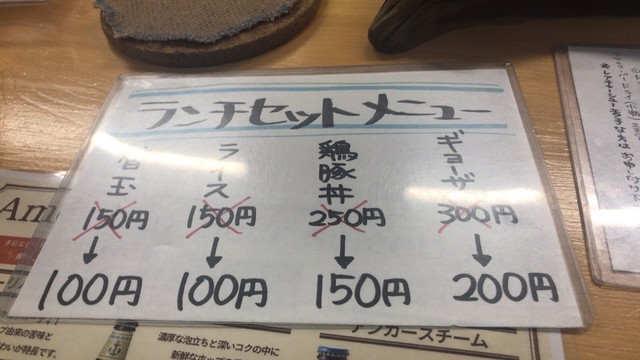 ランチセットメニュー
ギョーザ
300円
↓
200円
鶏豚丼
250円
↓
150円
ライス
150円
↓
100円
替玉
150円
↓
100円
Am
濃厚な泡立ちと深いコクの中に
アンカースチーム